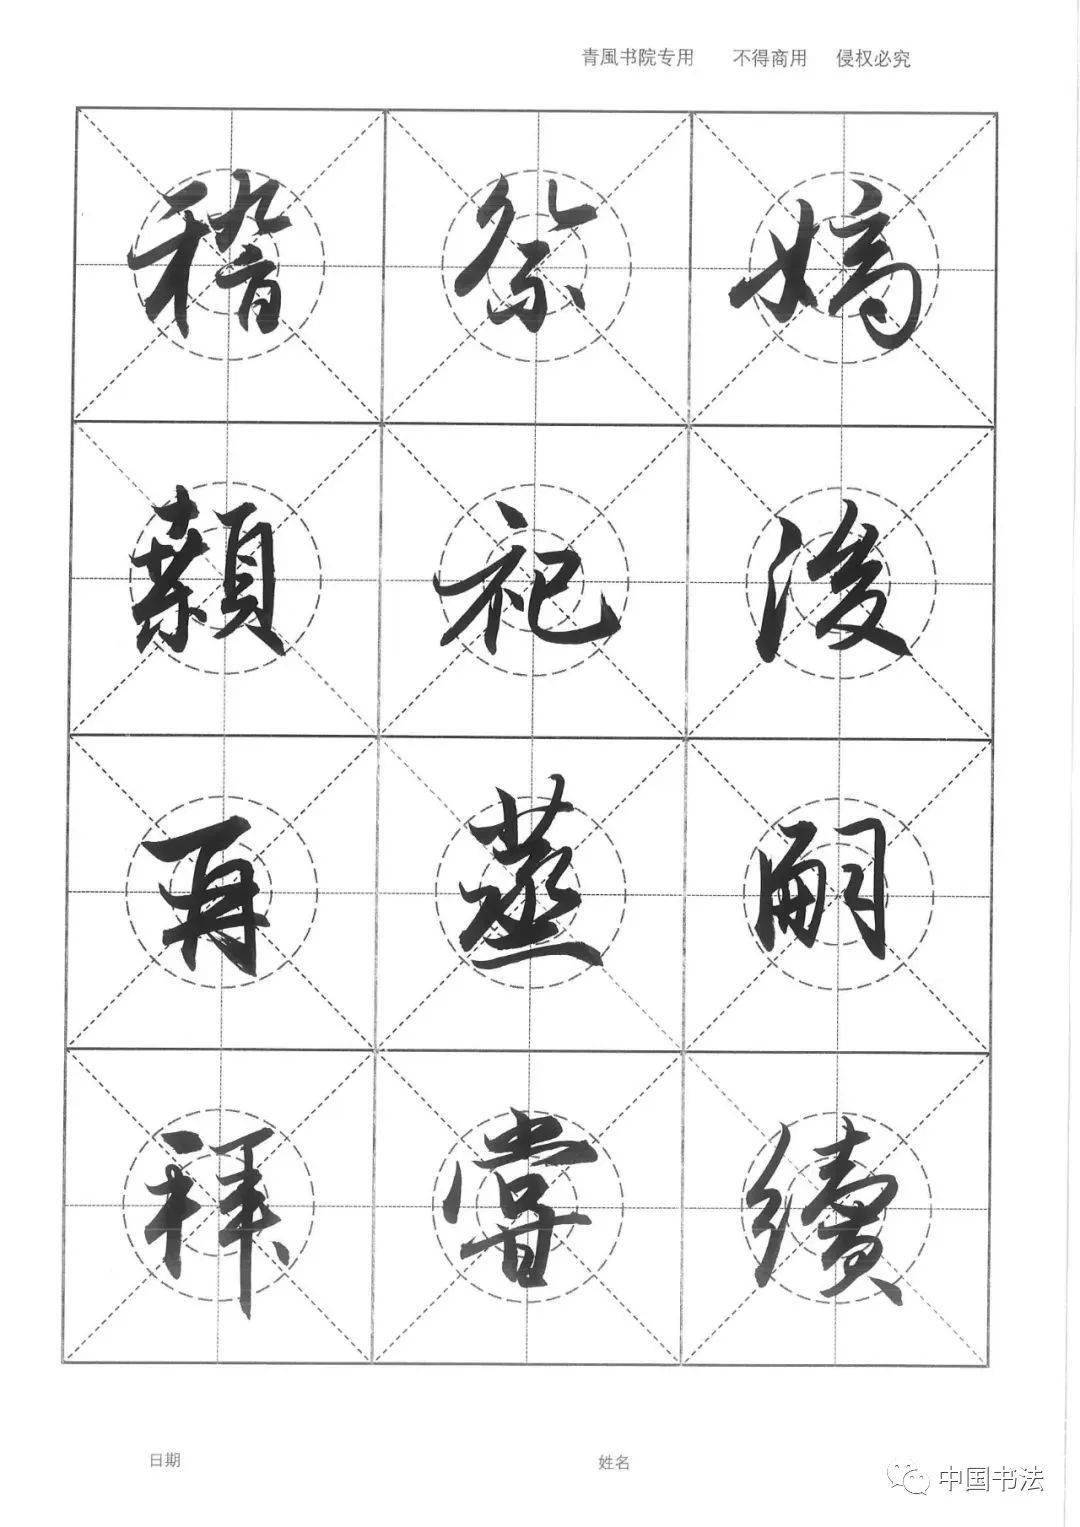 青風书院专用 不得商用 侵权必究
嫡後嗣續
祭祀蒸嘗
稽顙再拜
日期 姓名
中国书法